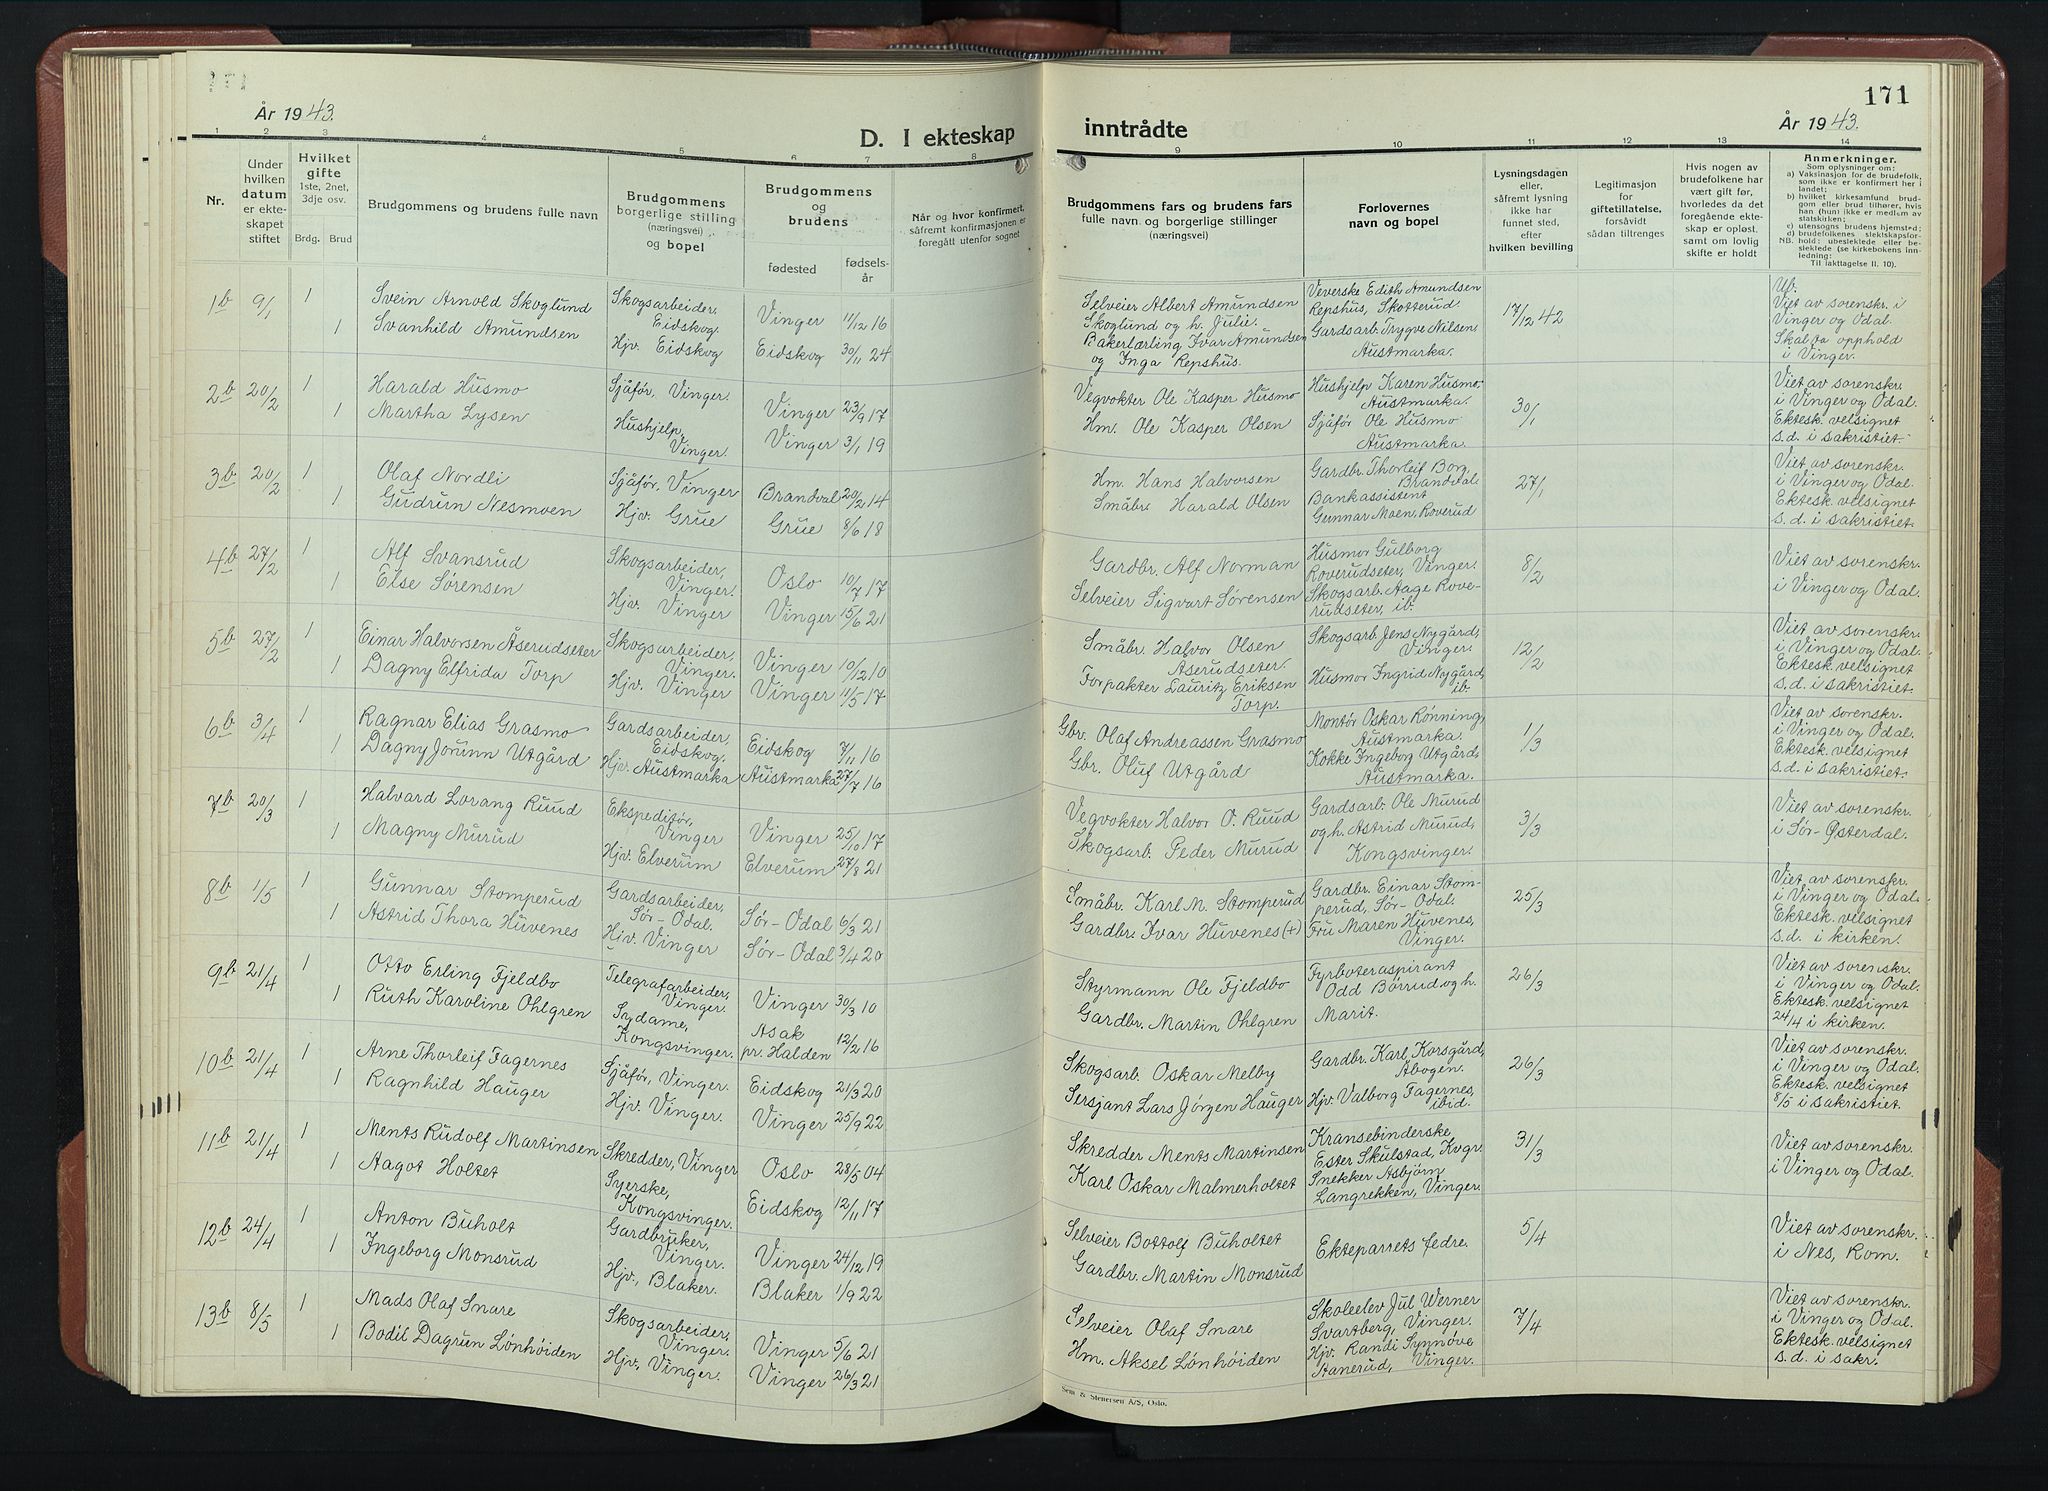 171
År 1943.
D. I ekteskap inntrådte
År 1943.
1 2 3 4 5 6 7 8 9 10 11 12 13 14
Nr.
Under
hvilken
datum
er ekte-
skapet
stiftet
Hvilket
gifte
1ste, 2net,
3dje osv.
Brdg. Brud
Brudgommens og brudens fulle navn
Brudgommens
borgerlige stilling
(næringsvei)
og bopel
Brudgommens
og
brudens
fødested
fødsels-
år
Når og hvor konfirmert,
såfremt konfirmasjonen er
foregått utenfor sognet
Brudgommens fars og brudens fars
fulle navn og borgerlige stillinger
(næringsvei)
Forlovernes
navn og bopel
Lysningsdagen
eller,
såfremt lysning
ikke har
funnet sted,
efter
hvilken bevilling
Legitimasjon
for
giftetillatelse,
forsåvidt
sådan tiltrenges
Hvis nogen av
brudefolkene har
vært gift før,
hvorledes da det
foregående ekte-
skap er opløst,
samt om lovlig
skifte er holdt
Anmerkninger.
Som oplysninger om:
a) Vaksinasjon for de brudefolk,
som ikke er konfirmert her i
landet;
b) hvilket kirkesamfund brud-
gom eller brud tilhører, hvis
han (hun) ikke er medlem av
statskirken;
c) utensogns brudens hjemsted;
d) brudefolkenes slektskapsfor-
NB. hold: ubeslektede eller be-
slektede (se kirkebokens inn-
ledning:
Til iakttagelse II, 10).
1b 9/1 1 Svein Arnold Skoglund
1 Svanhild Amundsen
Skogsarbeider,
Eidskog.
Hjv. Eidskog
Vinger 11/12 16
Eidskog 30/11 24
Selveier Albert Amundsen
Skoglund og h. Julie.
Bakerlærling Ivar Amundsen
og Inga Repshus.
Veverske Edith Amundsen
Repshus, Skotterud.
Gardsarb. Trygve Nilsen,
Austmarka.
17/12 42
Ub.
Viet av sorenskr. i
Vinger og Odal.
Skal ta opphold
i Vinger.
2b 20/2 1 Harald Husmo
1 Martha Lysen
Sjåfør, Vinger.
Hushjelp,
Vinger.
Vinger 23/9 17
Vinger 3/1 19
Vegvokter Ole Kasper Husmo
Hm. Ole Kasper Olsen
Hushjelp Karen Husmo,
Austmarka.
Sjåfør Ole Husmo
Austmarka.
30/1
Viet av sorenskr.
i Vinger og Odal.
Ektesk. velsignet
s.d. i sakristiet.
3b 20/2 1 Olaf Nordli
1 Gudrun Nesmoen
Sjåfør, Vinger
Hjv. Grue
Brandval 20/2 14
Grue 8/6 18
Hm. Hans Halvorsen
Småbr. Harald Olsen
Gardbr. Thorleif Borg,
Brandval.
Bankassistent
Gunnar Moen, Roverud
27/1
Viet av sorenskr.
i Vinger og Odal.
Ektesk. velsignet
s.d. i sakristiet.
4b 27/2 1 Alf Svansrud
1 Else Sørensen
Skogsarbeider,
Vinger.
Hjv. Vinger
Oslo 10/7 17
Vinger 15/6 21
Gardbr. Alf Norman
Selveier Sigvart Sørensen
Husmor Gulborg
Roverudseter, Vinger.
Skogsarb. Aage Rove-
rudseter, ib.
8/2
Viet av sorenskr.
i Vinger og Odal.
5b 27/2 1 Einar Halvorsen Åserudseter
1 Dagny Elfrida Torp
Skogsarbeider,
Vinger.
Hjv. Vinger
Vinger 10/12 10
Vinger 11/5 17
Småbr. Halvor Olsen
Aserudseter.
Forpakter Lauritz Eriksen
Torp.
Skogsarb. Jens Nygård,
Vinger.
Husmor Ingrid Nygård,
ib.
12/2
Viet av sorenskr.
i Vinger og Odal.
Ektesk. velsignet
s.d. i sakristiet.
6b 3/4 1 Ragnar Elias Grasmo
1 Dagny Jorunn Utgård
Gardsarbeider,
Eidskog.
Hjv. Austmarka
Eidskog 7/11 16
Austmarka 27/7 16
Gbr. Olaf Andreassen Grasmo
Gbr. Oluf Utgård
Montør Oskar Rønning,
Austmarka.
Kokke Ingeborg Utgård,
Austmarka.
1/3
Viet av sorenskr.
i Vinger og Odal.
Ektesk. velsignet
s.d. i sakristiet.
7b 20/3 1 Halvard Lorang Ruud
1 Magny Murud
Ekspeditør,
Vinger
Hjv. Elverum
Vinger 25/10 17
Elverum 27/8 21
Vegvokter Halvor O. Ruud
Skogsarb. Peder Murud
Gardsarb. Ole Murud
og h. Astrid Murud,
Kongsvinger.
3/3
Viet av sorenskr.
i Sør-Østerdal.
8b 1/5 1 Gunnar Stomperud
1 Astrid Thora Huvenes
Gardsarbeider,
Sør-Odal.
Hjv. Vinger
Sør-Odal 6/3 21
Sør-Odal 3/4 20
Småbr. Karl M. Stomperud
Gardbr. Ivar Huvenes (+)
Gardbr. Einar Stom-
perud, Sør-Odal.
Fru Maren Huvenes,
Vinger.
25/3
Viet av sorenskr.
i Vinger og Odal.
Ektesk. velsignet
s.d. i kirken.
9b 21/4 1 Otto Erling Fjeldbo
1 Ruth Karoline Ohlgren
Telegrafarbeider,
Vinger.
Sydame,
Kongsvinger.
Vinger 30/3 10
Asak
pr. Halden 12/2 16
Styrmann Ole Fjeldbo
Gardbr. Martin Ohlgren
Fyrbøteraspirant
Odd Børrud og h.
Marit.
26/3
Viet av sorenskr.
i Vinger og Odal.
Ektesk. velsignet
24/4 i kirken.
10b 21/4 1 Arne Thorleif Fagernes
1 Ragnhild Hauger
Sjåfør, Vinger.
Hjv. Vinger.
Eidskog 21/3 20
Vinger 25/9 22
Skogsarb. Oskar Melby
Sersjant Lars Jørgen Hauger
Gardbr. Karl Korsgård,
Åbogen.
Hjv. Valborg Fagernes,
ibid.
26/3
Viet av sorenskr.
i Vinger og Odal.
Ektesk. velsignet
8/5 i sakristiet.
11b 21/4 1 Ments Rudolf Martinsen
1 Aagot Holtet
Skredder, Vinger
Syerske,
Kongsvinger.
Oslo 28/5 04
Eidskog 12/11 17
Skredder Ments Martinsen
Karl Oskar Malmerholtet
Kransebinderske
Ester Skulstad, Kvgr.
Snekker Asbjørn
Langrekken, Vinger.
31/3
Viet av sorenskr.
i Vinger og Odal.
12b 24/4 1 Anton Buholt
1 Ingeborg Monsrud
Gardbruker,
Vinger.
Hjv., Blaker.
Vinger 24/12 19
Blaker 1/9 22
Selveier Bottolf Buholtet
Gardbr. Martin Monsrud
Ekteparrets fedre.
5/4
Viet av sorenskr.
i Nes, Rom.
13b 8/5 1 Mads Olaf Snare
1 Bodil Dagrun Lønhøiden
Skogsarbeider,
Vinger.
Hjv., Vinger.
Vinger 5/6 21
Vinger 26/3 21
Selveier Olaf Snare
Hm. Aksel Lønhøiden
Skoleelev Jul Werner
Svartberg, Vinger.
Hjv. Randi Synnøve
Stanerud, Vinger.
7/4
Viet av sorenskr.
i Vinger og Odal.
Ektesk. velsignet
s.d. i sakr.
Sem & Stenersen A/S, Oslo.